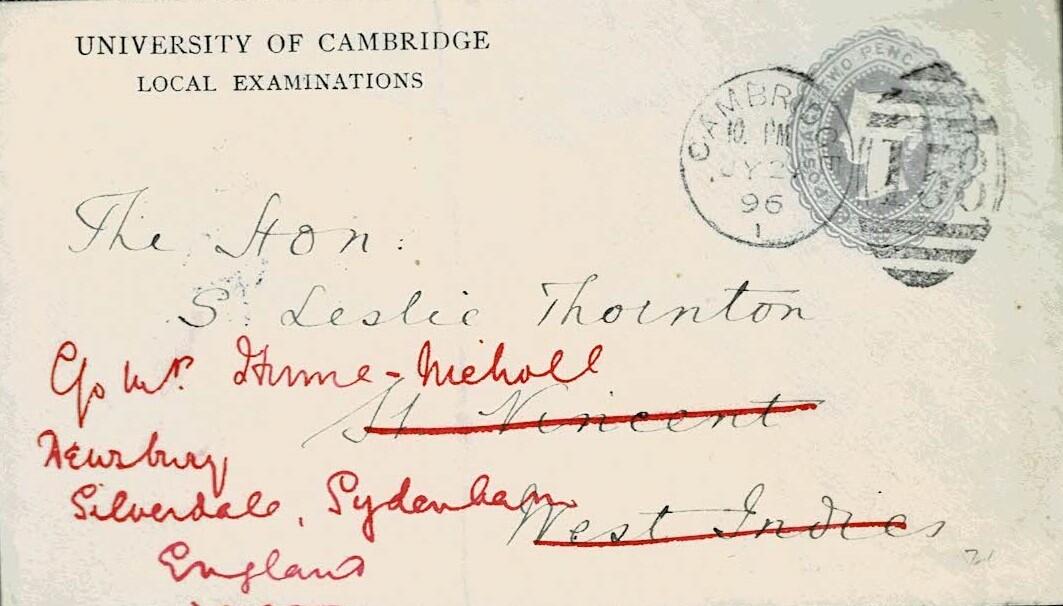 UNIVERSITY OF CAMBRIDGE
LOCAL EXAMINATIONS
CAMBRIDGE
10. PM
JY 2
96
1
TWO PENCE
POSTAGE
The Hon:
S. Leslie Thornton
C/o Mr. Hume-Nicholl
St Vincent
Newsbury
Silverdale, Sydenham
West Indies
England